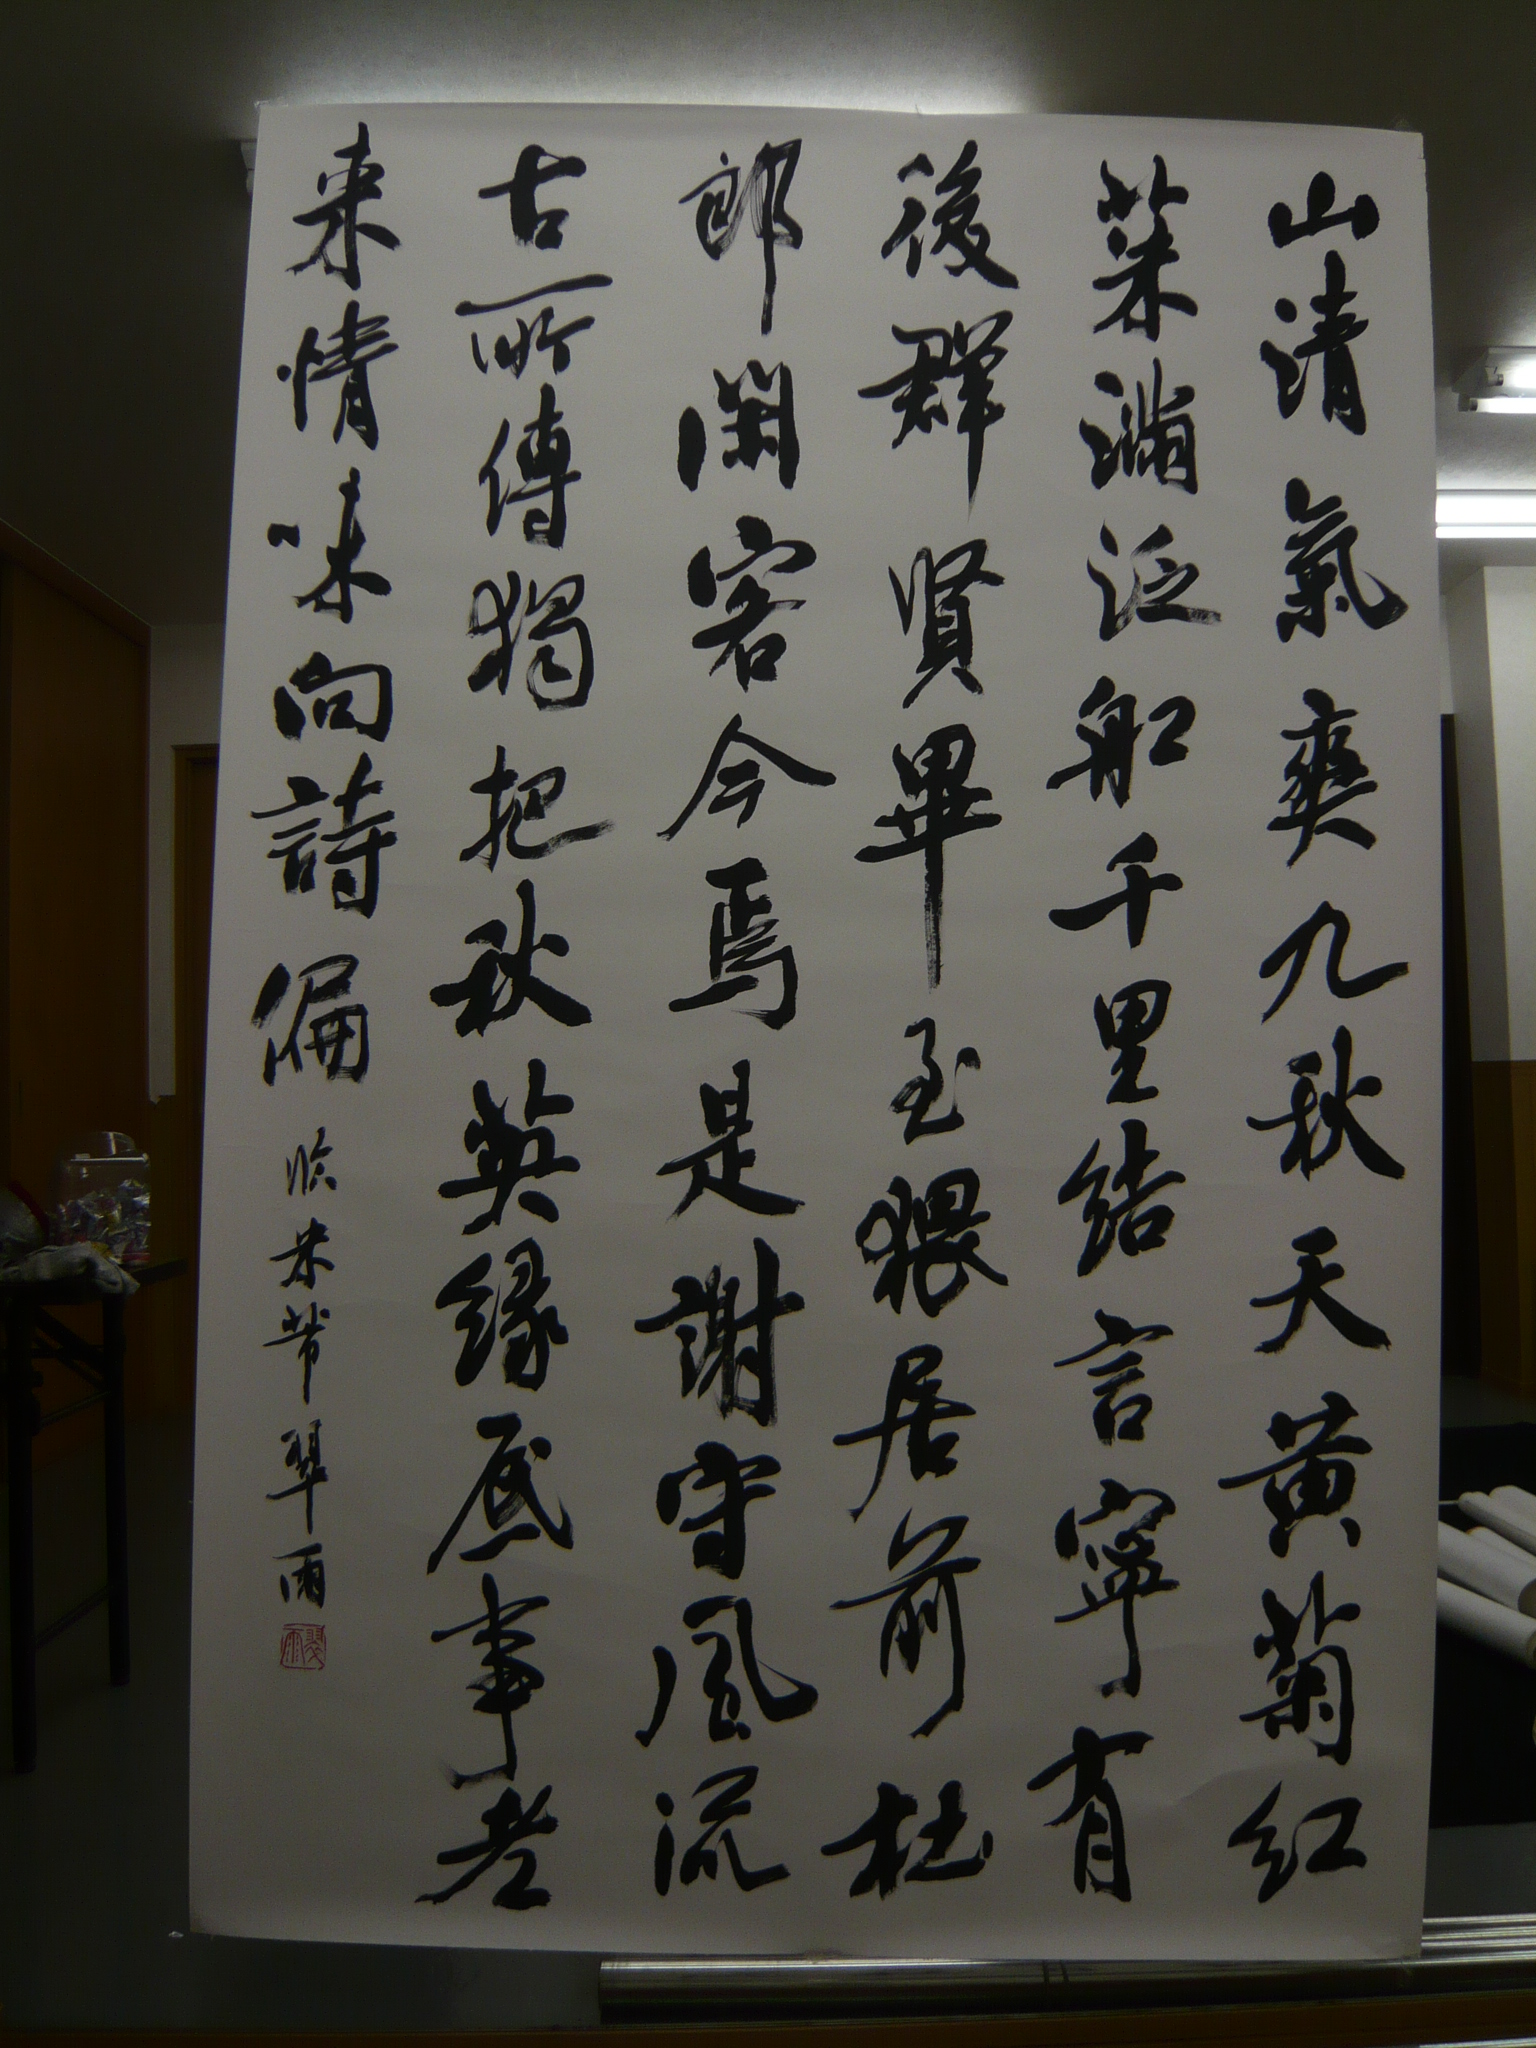 山清氣爽九秋天黄菊紅
茱滿泛船千里結言寧有
後群賢畢至猥居前杜
郎閑客今焉是謝守風流
古所傳獨把秋英緣底事老
来情味向詩偏 临米芾翠雨
翠雨